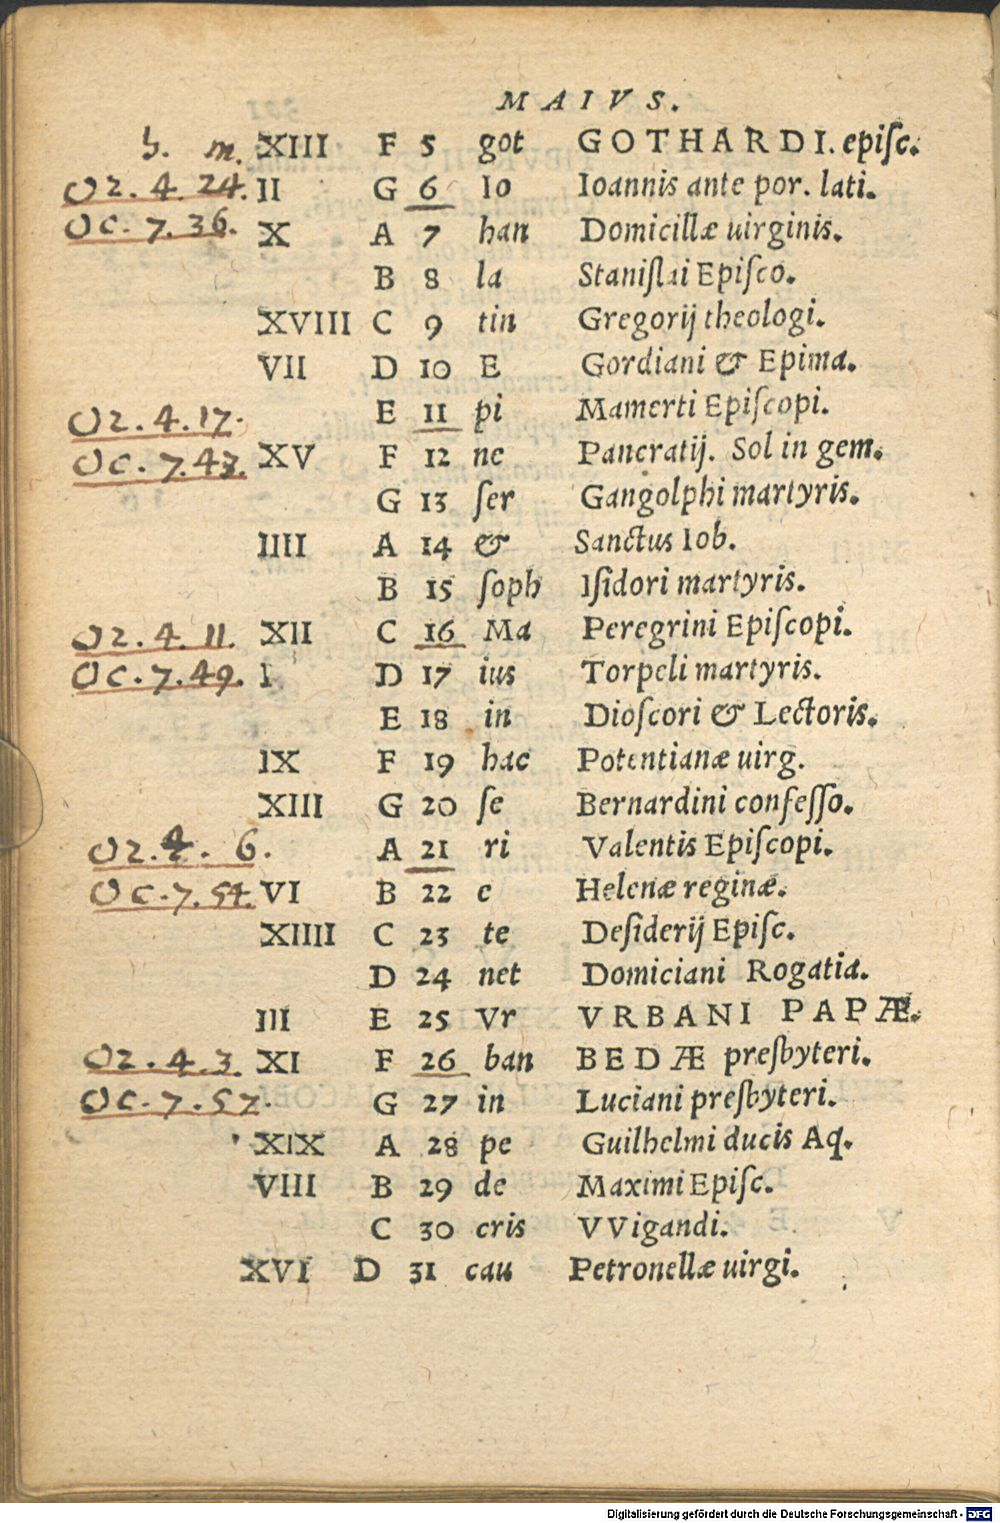 MAIVS.
h. m. XIII F 5 got GOTHARDI. episc.
Oz. 4. 24. II G 6 Io Ioannis ante por. lati.
Oc. 7. 36. X A 7 han Domicillæ uirginis.
B 8 la Stanislai Episco.
XVIII C 9 tin Gregorij theologi.
VII D 10 E Gordiani & Epima.
Oz. 4. 17. E 11 pi Mamerti Episcopi.
Oc. 7. 43. XV F 12 ne Pancratij. Sol in gem.
G 13 ser Gangolphi martyris.
IIII A 14 & Sanctus Iob.
B 15 soph Isidori martyris.
Oz. 4. 11. XII C 16 Ma Peregrini Episcopi.
Oc. 7. 49. I D 17 ius Torpeli martyris.
E 18 in Dioscori & Lectoris.
IX F 19 hac Potentianæ uirg.
XIII G 20 se Bernardini confesso.
Oz. 4. 6. A 21 ri Valentis Episcopi.
Oc. 7. 54. VI B 22 e Helenæ reginæ.
XIIII C 23 te Desiderij Episc.
D 24 net Domiciani Rogatia.
III E 25 Vr VRBANI PAPÆ.
Oz. 4. 3. XI F 26 ban BEDÆ presbyteri.
Oc. 7. 57. G 27 in Luciani presbyteri.
XIX A 28 pe Guilhelmi ducis Aq.
VIII B 29 de Maximi Episc.
C 30 cris VVigandi.
XVI D 31 cau Petronellæ uirgi.
Digitalisierung gefördert durch die Deutsche Forschungsgemeinschaft - DFG